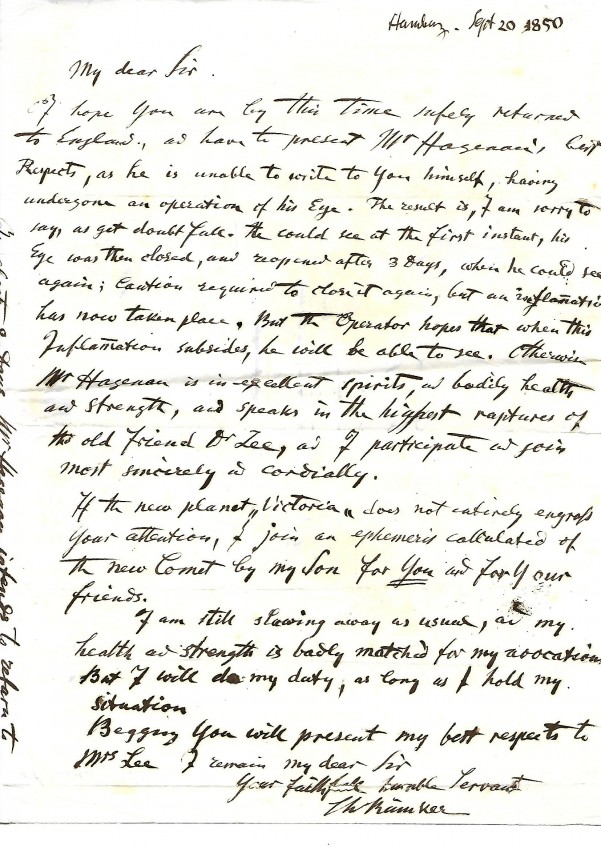 Hamburg. Sept 20 1850
My dear Sir.
I hope You are by this time safely returned
to England., ad have to present Mr Hagenau's best
Respects, as he is unable to write to You himself, having
undergone an operation of his Eye. The result is, I am sorry to
say, as yet doubtfull. He could see at the first instant, his
Eye was then closed, and reopened after 3 Days, when he could see
again; Caution required to close it again, but an inflamatio
has now taken place. But the Operator hopes that when this
Inflamation subsides, he will be able to see. Otherwise
Mr Hagenau is in excellent spirits, ad bodily health
and strength, and speaks in the highest raptures of
his old friend Dr Lee, ad I participate ad join
most sincerely ad cordially.
If the new planet „Victoria„ does not entirely engross
Your attention, I join an ephemeris callulated of
the new Comet by my Son for You and for Your
friends.
I am still slaving away as usual, ad my
health ad strength is badly matched for my avocations
But I will do my duty, as long as I hold my
situation
Begging You will present my best respects to
Mrs Lee I remain my dear Sir
Your faithfull humble Servant
Ch Rümker
Mr Hagenau intends to return to